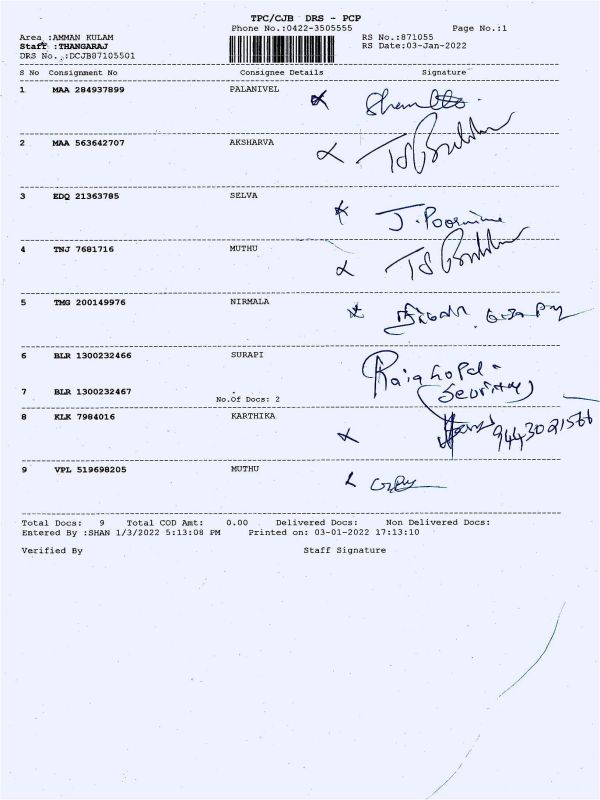 TPC/CJB DRS - PCP
Phone No.:0422-3505555 Page No.:1
Area :AMMAN KULAM RS No.:871055
Staff :THANGARAJ RS Date:03-Jan-2022
DRS No.:DCJB87105501
S No Consignment No Consignee Details Signature
1 MAA 284937899 PALANIVEL
2 MAA 563642707 AKSHARVA
3 EDQ 21363785 SELVA J. Poornima
4 TNJ 7681716 MUTHU
5 TMG 200149976 NIRMALA
6 BLR 1300232466 SURAPI
(Security)
7 BLR 1300232467 No.Of Docs: 2
8 KLK 7984016 KARTHIKA 9443021566
9 VPL 519698205 MUTHU
Total Docs: 9 Total COD Amt: 0.00 Delivered Docs: Non Delivered Docs:
Entered By :SHAN 1/3/2022 5:13:08 PM Printed on: 03-01-2022 17:13:10
Verified By Staff Signature